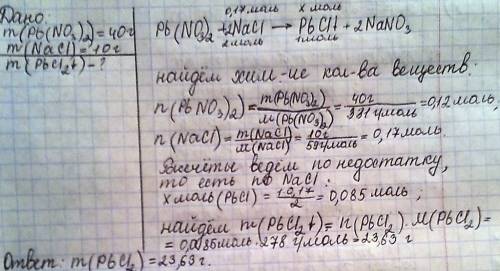 Дано:
m(Pb(NO₃)₂)=40г
m(NaCl)=10г
m(PbCl₂↓)-?
0,17моль х моль
Pb(NO₃)₂+2NaCl→PbCl↓+2NaNO₃
2моль 1моль
найдём хим-ие кол-ва веществ:
n(PbNO₃)₂)=m(Pb(NO₃)₂)/M(Pb(NO₃)₂)=40г/331г/моль=0,12моль,
n(NaCl)=m(NaCl)/M(NaCl)=10г/59г/моль=0,17моль.
Рассчёты ведём по недостатку,
то есть по NaCl:
х моль(PbCl)=1·0,17/2=0,085моль;
найдём m(PbCl₂↓)=n(PbCl₂)·M(PbCl₂)=
=0,085моль·278г/моль=23,63г
Ответ: m(PbCl₂)=23,63г.